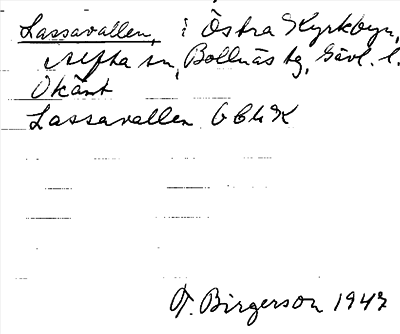 Lassavallen, i Östra Kyrkbyn,
Alfta sn, Bollnäs tg, Gävl. l.
Okänt
Lassavallen GEK
T. Birgerson 1947